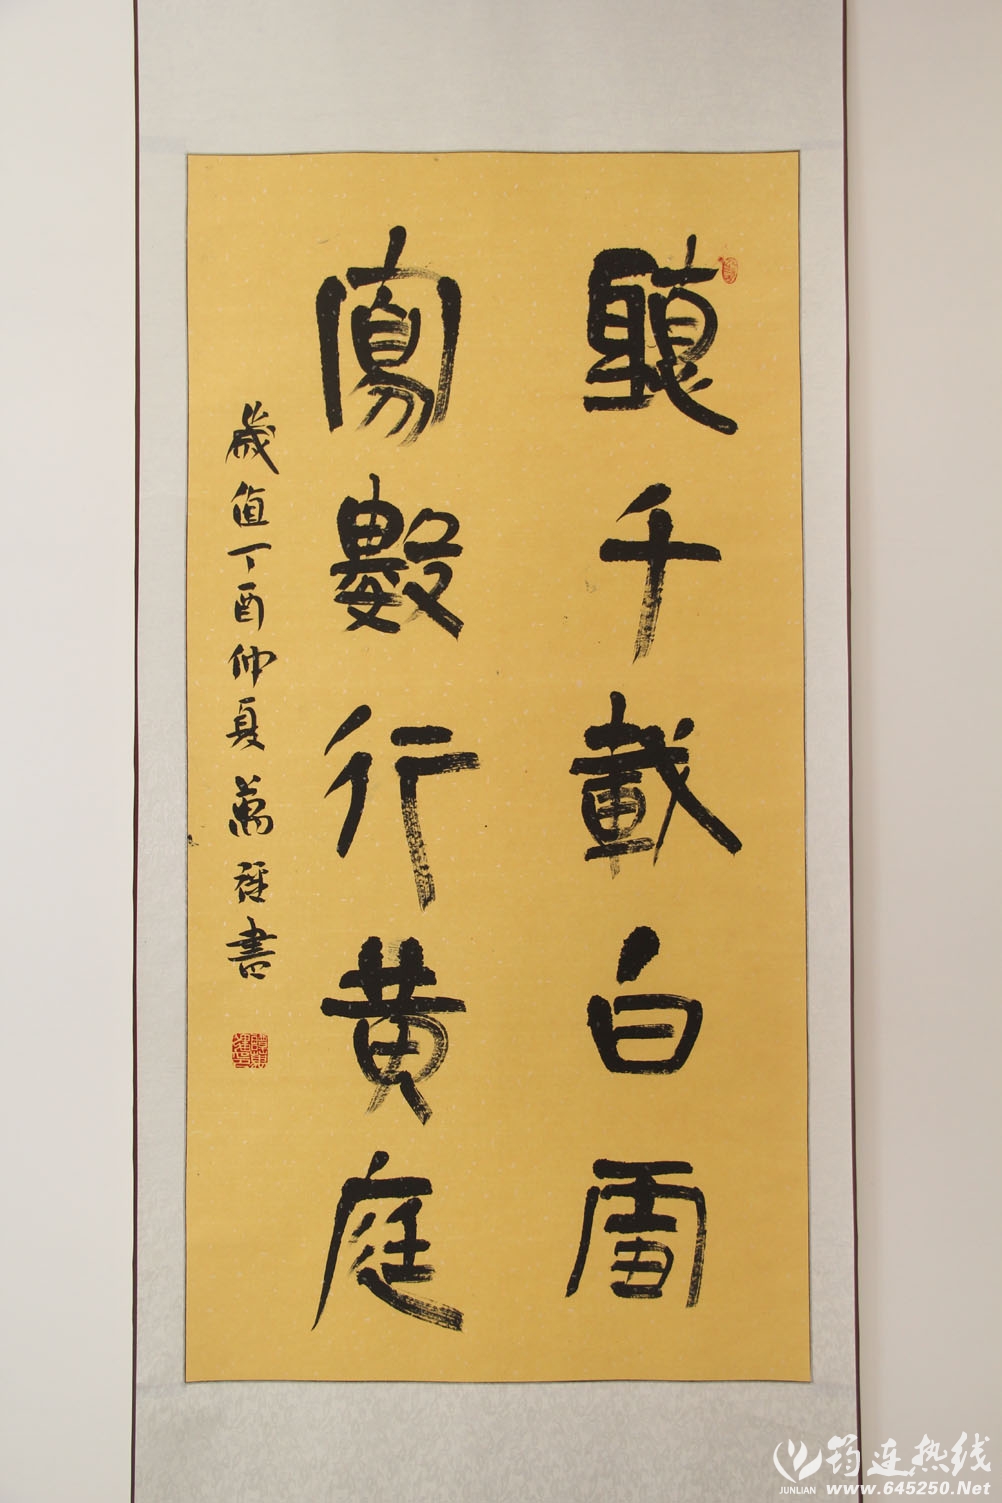 聽千載白雪
寫數行黄庭
歲值丁酉仲夏萬程書
筠连热线
JUNLIAN
www.645250.Net